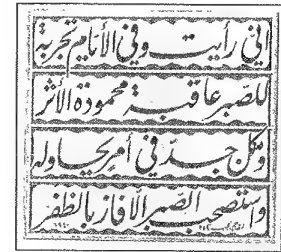 إني رأيت وفي الأنام تجربة
للصبر عاقبة محمودة الأثر
وكل جد في أمر يحاوله
واستصحب الصبر إلا فاز بالظفر